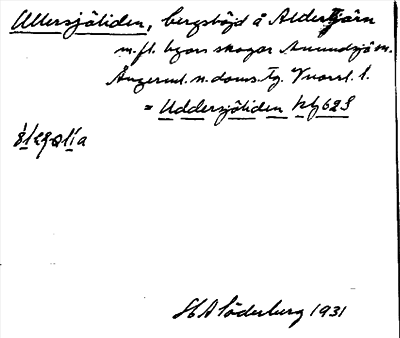 Ullersjöliden, bergshöjd å Aldertjärn
m.fl. byars skogar Anundsjö sn.
Ångerml. n. doms. tg. Vnorrl. l.
= Uddersjöliden kbl 62 S
H A Söderberg 1931